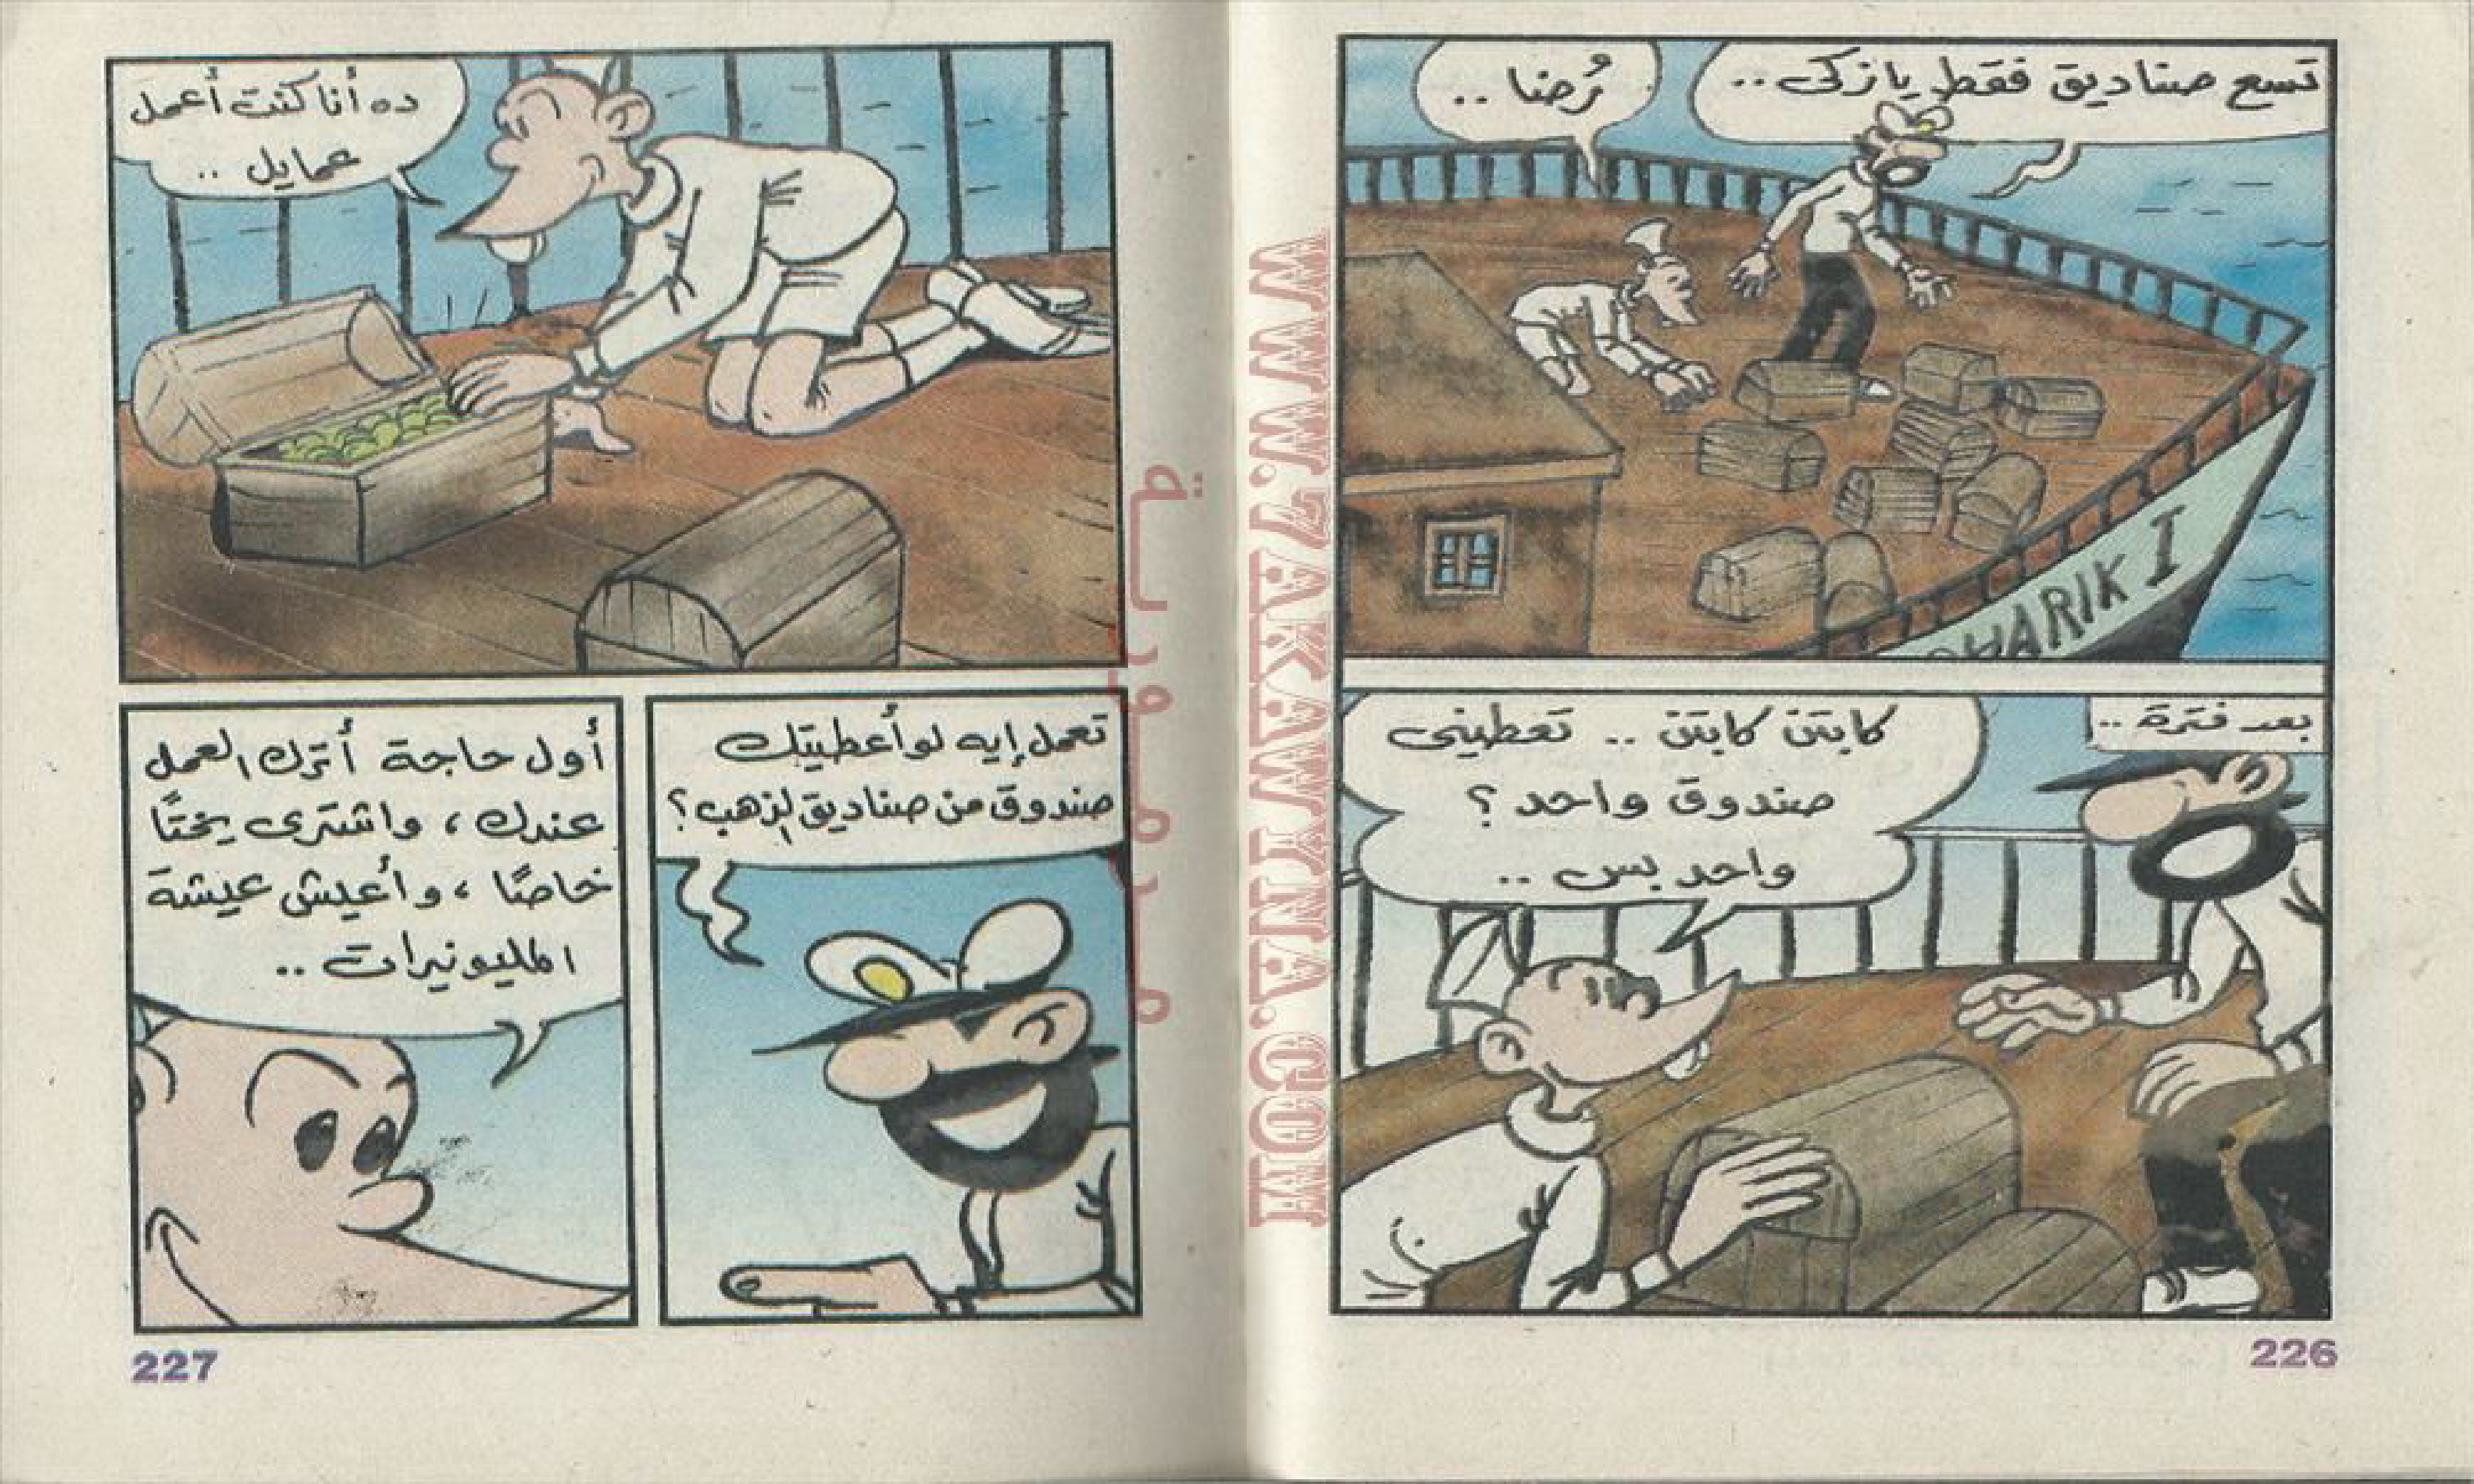 تسع صناديق فقط يا زكى ..
رُحنا ..
HARIK I
بعد فترة ..
كابتن كابتن .. تعطينى
صندوق واحد ؟
واحد بس ..
226
ده أنا كنت أعمل
عمايل ..
تعمل إيه لو أعطيتك
صندوق من صناديق الذهب ؟
أول حاجة أترك العمل
عندك ، واشترى يختًا
خاصًا ، وأعيش عيشة
المليونيرات ..
227